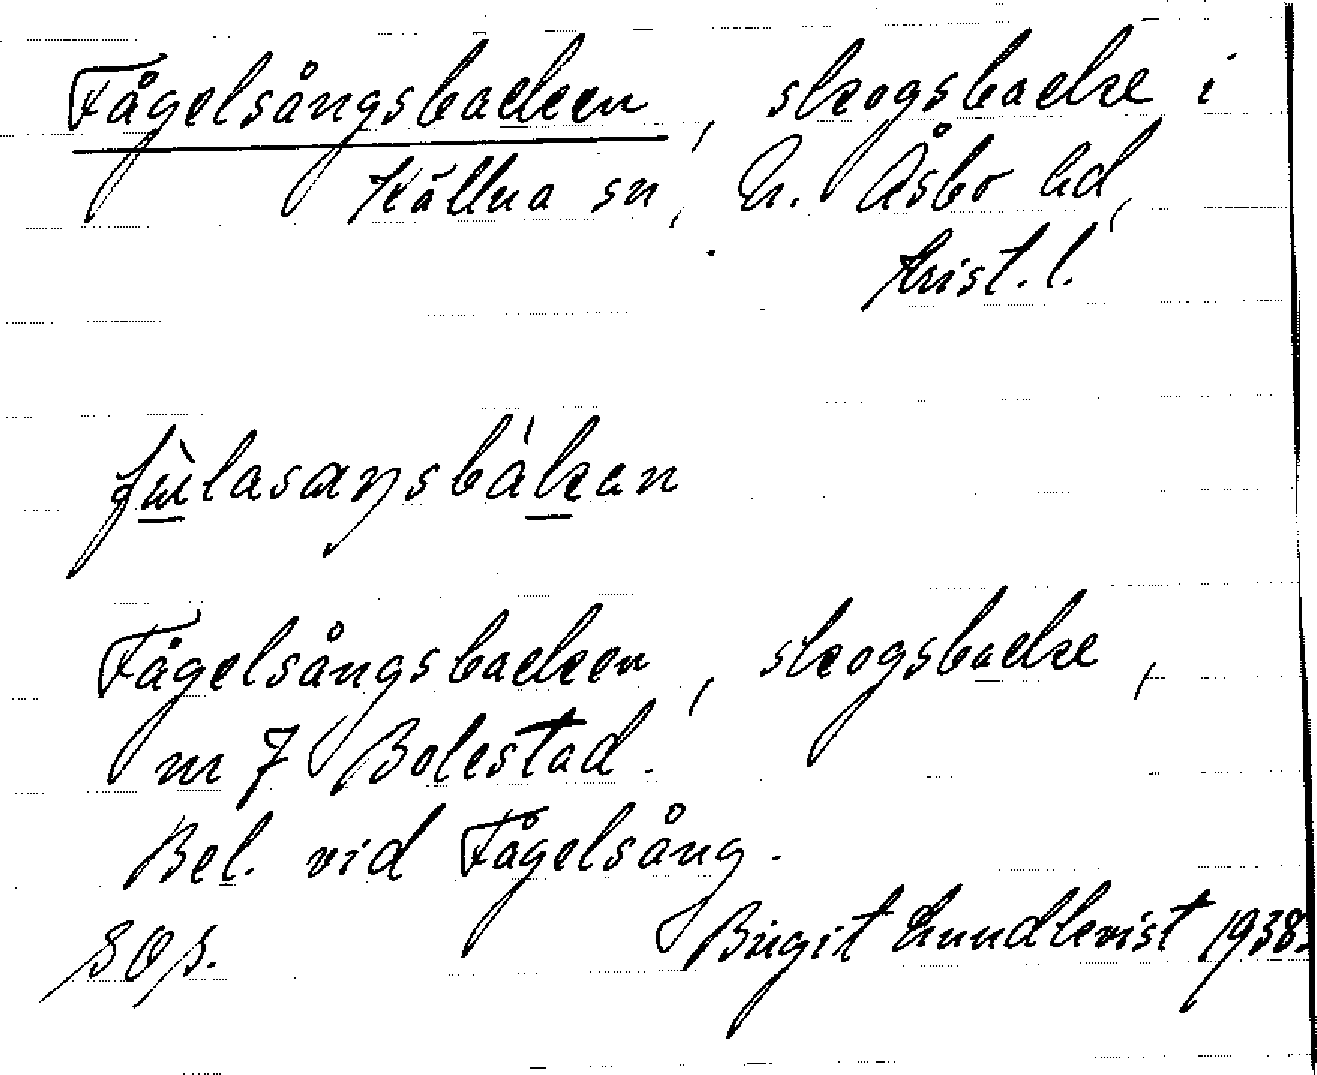 Fågelsångsbacken, skogsbacke i
Källna sn, N. Åsbo hd,
Krist. l.
fùlasaŋsbákan
Fågelsångsbacken, skogsbacke,
nr 7 Bolestad.
Bel. vid Fågelsång.
Birgit Lundkvist 1938.